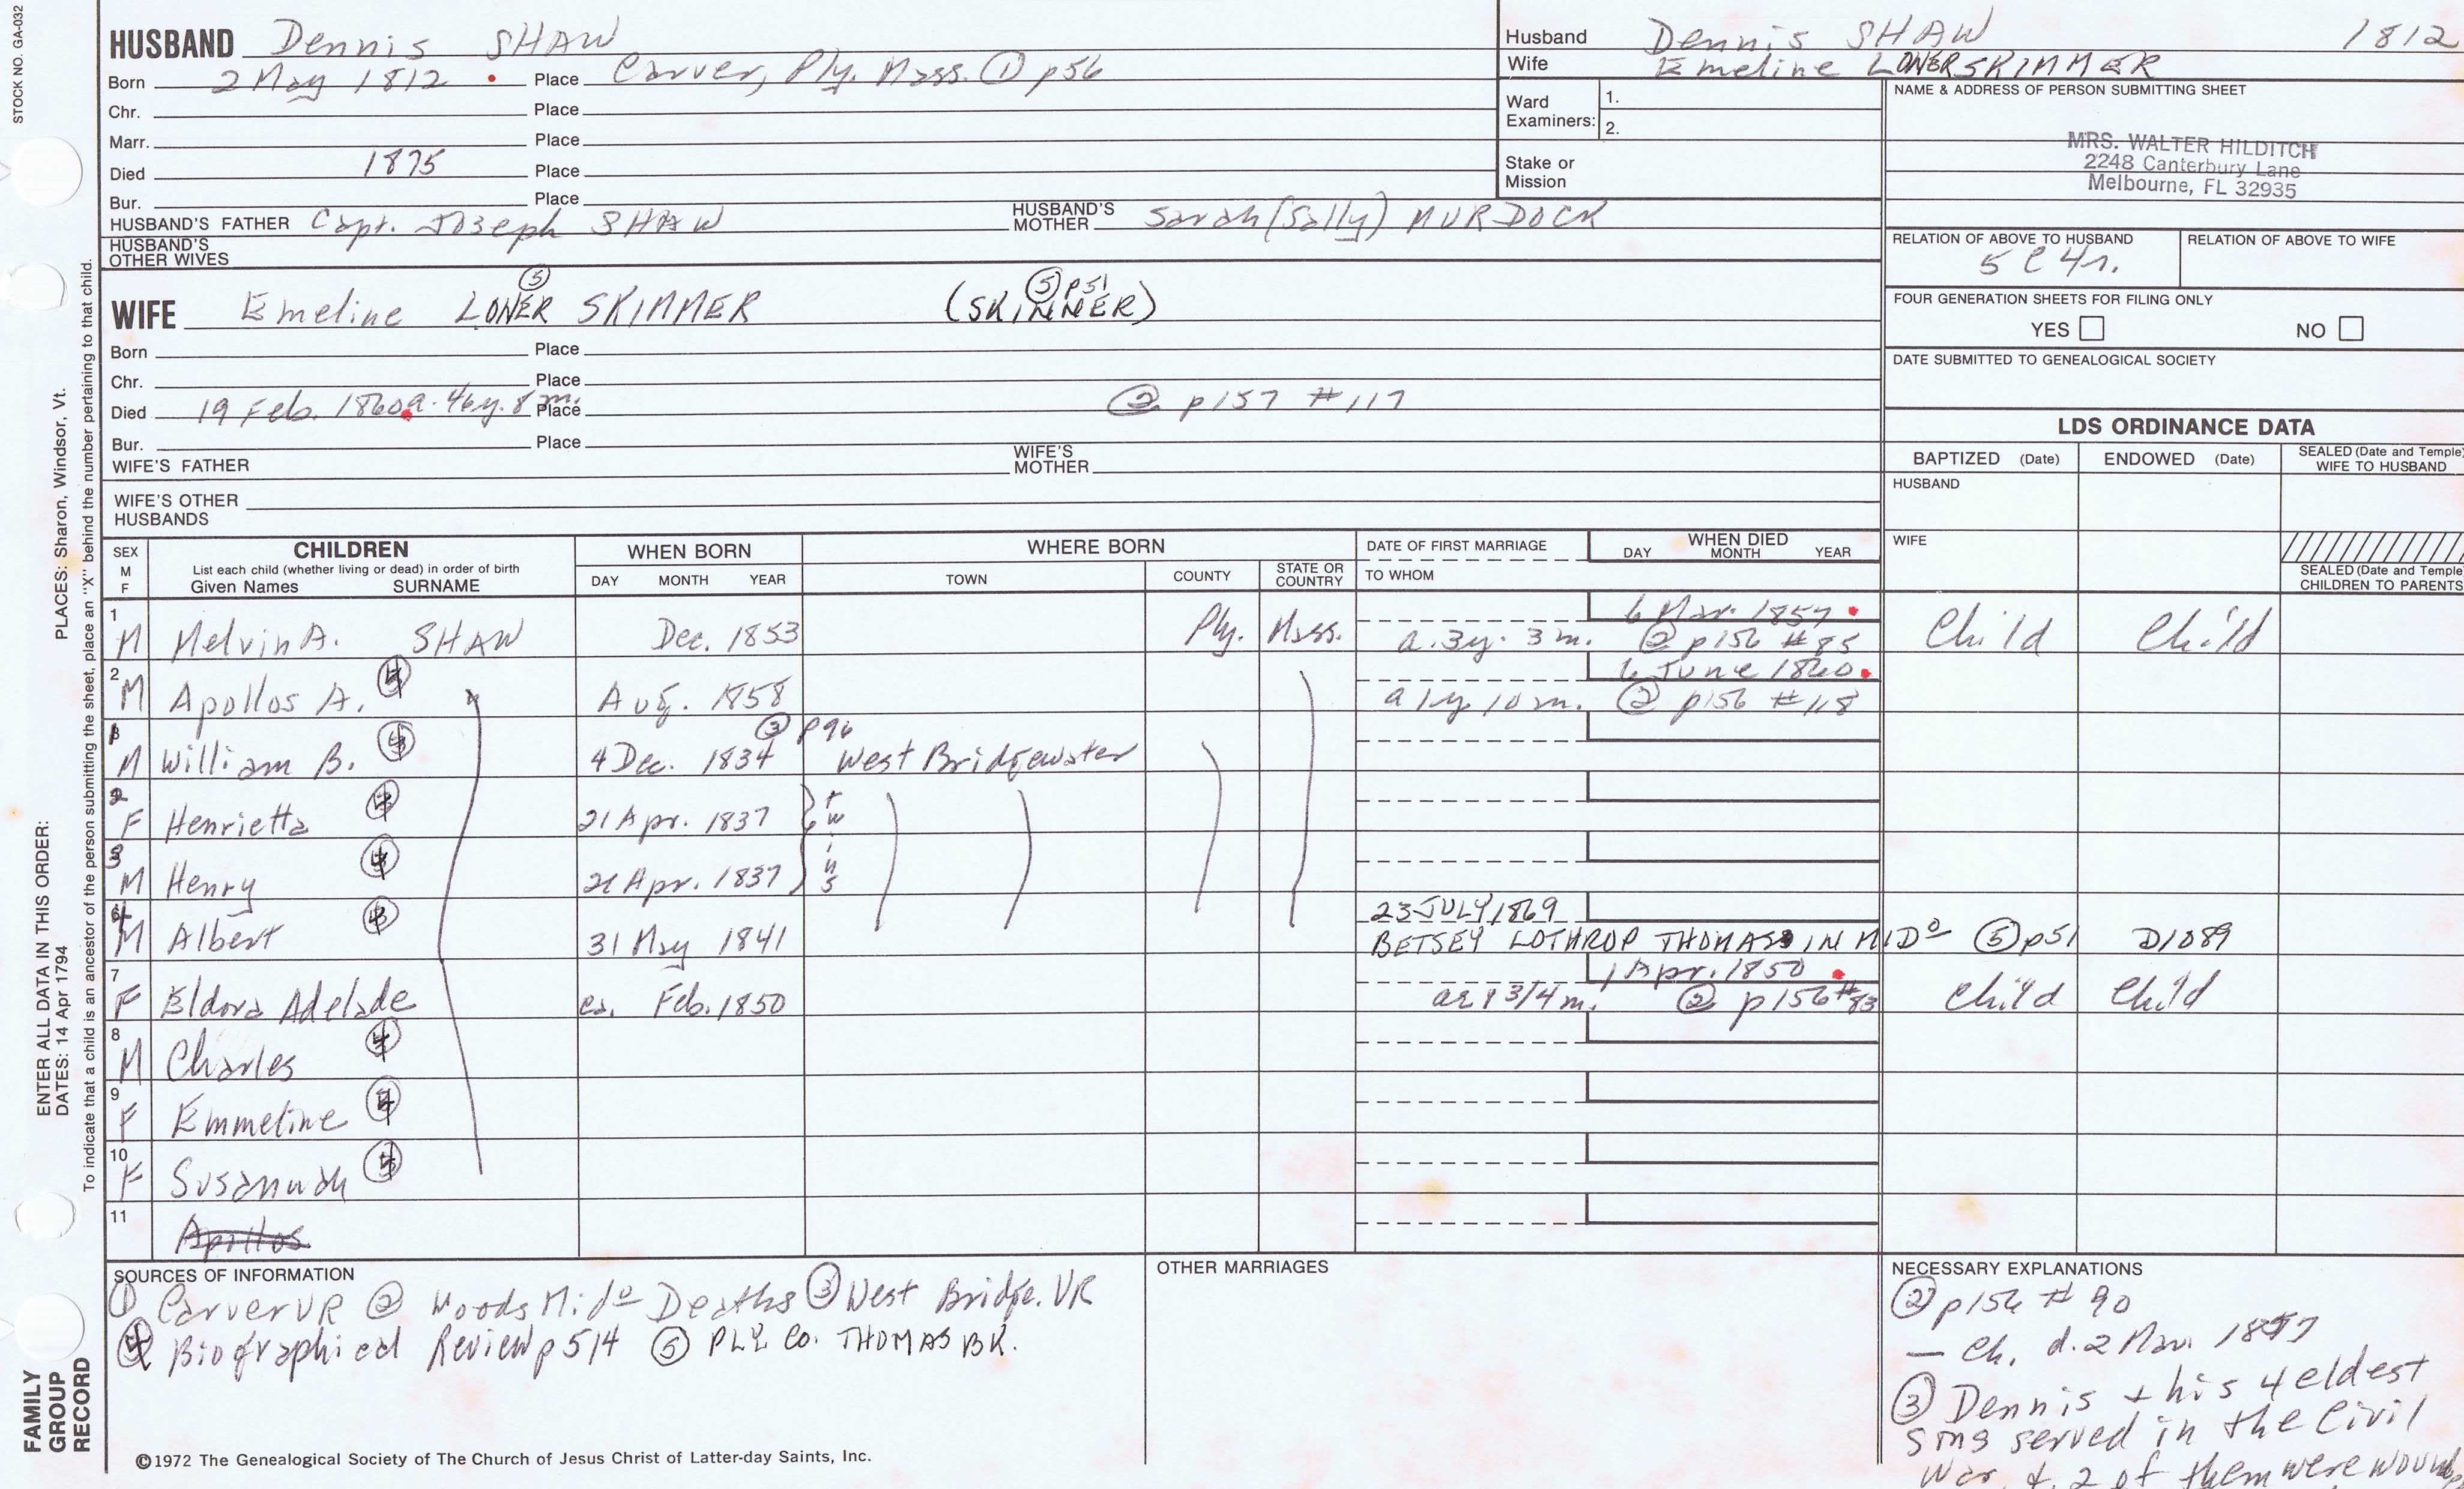 STOCK NO. GA-032
HUSBAND Dennis SHAW
Born 2 May 1812 Place Carver, Ply. Mass. ① p56
Chr. Place
Marr. Place
Died 1875 Place
Bur. Place
HUSBAND'S FATHER Capt. Joseph SHAW HUSBAND'S MOTHER Sarah (Sally) MURDOCK
HUSBAND'S OTHER WIVES
Husband Dennis SHAW 1812
Wife Emeline LONER SKIMMER
Ward Examiners: 1.
2.
Stake or Mission
NAME & ADDRESS OF PERSON SUBMITTING SHEET
MRS. WALTER HILDITCH
2248 Canterbury Lane
Melbourne, FL 32935
RELATION OF ABOVE TO HUSBAND RELATION OF ABOVE TO WIFE
5 C 4 r.
FOUR GENERATION SHEETS FOR FILING ONLY
YES NO
DATE SUBMITTED TO GENEALOGICAL SOCIETY
⑤ ⑤ p51
WIFE Emeline LONER SKIMMER (SKINNER)
Born Place
Chr. Place
Died 19 Feb. 1860 a. 46y. 8m. Place ② p157 #117
Bur. Place
WIFE'S FATHER WIFE'S MOTHER
WIFE'S OTHER HUSBANDS
LDS ORDINANCE DATA
BAPTIZED (Date) ENDOWED (Date) SEALED (Date and Temple) WIFE TO HUSBAND
HUSBAND
WIFE
SEALED (Date and Temple) CHILDREN TO PARENTS
SEX M F CHILDREN WHEN BORN WHERE BORN DATE OF FIRST MARRIAGE WHEN DIED
List each child (whether living or dead) in order of birth
Given Names SURNAME DAY MONTH YEAR TOWN COUNTY STATE OR COUNTRY TO WHOM DAY MONTH YEAR
1 M Melvin A. SHAW Dec. 1853 Ply. Mass. a. 3y. 3m. 6 Mar. 1857 ② p156 #85 Child Child
2 M Apollos A. ④ Aug. 1858 a 1y 10m. 6 June 1860 ② p156 #118
③ p96
1 M William B. ④ 4 Dec. 1834 West Bridgewater
2 F Henrietta ④ 21 Apr. 1837 twins
3 M Henry ④ 21 Apr. 1837
4 M Albert ④ 31 May 1841 23 JULY 1869
BETSEY LOTHROP THOMAS IN MIDº ⑤ p51 D1089
7 F Eldora Adelade ca. Feb. 1850 1 Apr. 1850
ae 1 3/4 m. ② p156 #83 Child Child
8 M Charles ④
9 F Emmeline ④
10 F Susannah ④
11 Apollos
SOURCES OF INFORMATION
① Carver VR ② Woods Midº Deaths ③ West Bridge. VR
④ Biographical Review p514 ⑤ PLY. Co. THOMAS BK.
OTHER MARRIAGES
NECESSARY EXPLANATIONS
② p156 #90
— Ch. d. 2 Mar. 1857
③ Dennis + his 4 eldest
sons served in the Civil
War & 2 of them were
©1972 The Genealogical Society of The Church of Jesus Christ of Latter-day Saints, Inc.
FAMILY GROUP RECORD
ENTER ALL DATA IN THIS ORDER:
DATES: 14 Apr 1794
PLACES: Sharon, Windsor, Vt.
To indicate that a child is an ancestor of the person submitting the sheet, place an "X" behind the number pertaining to that child.